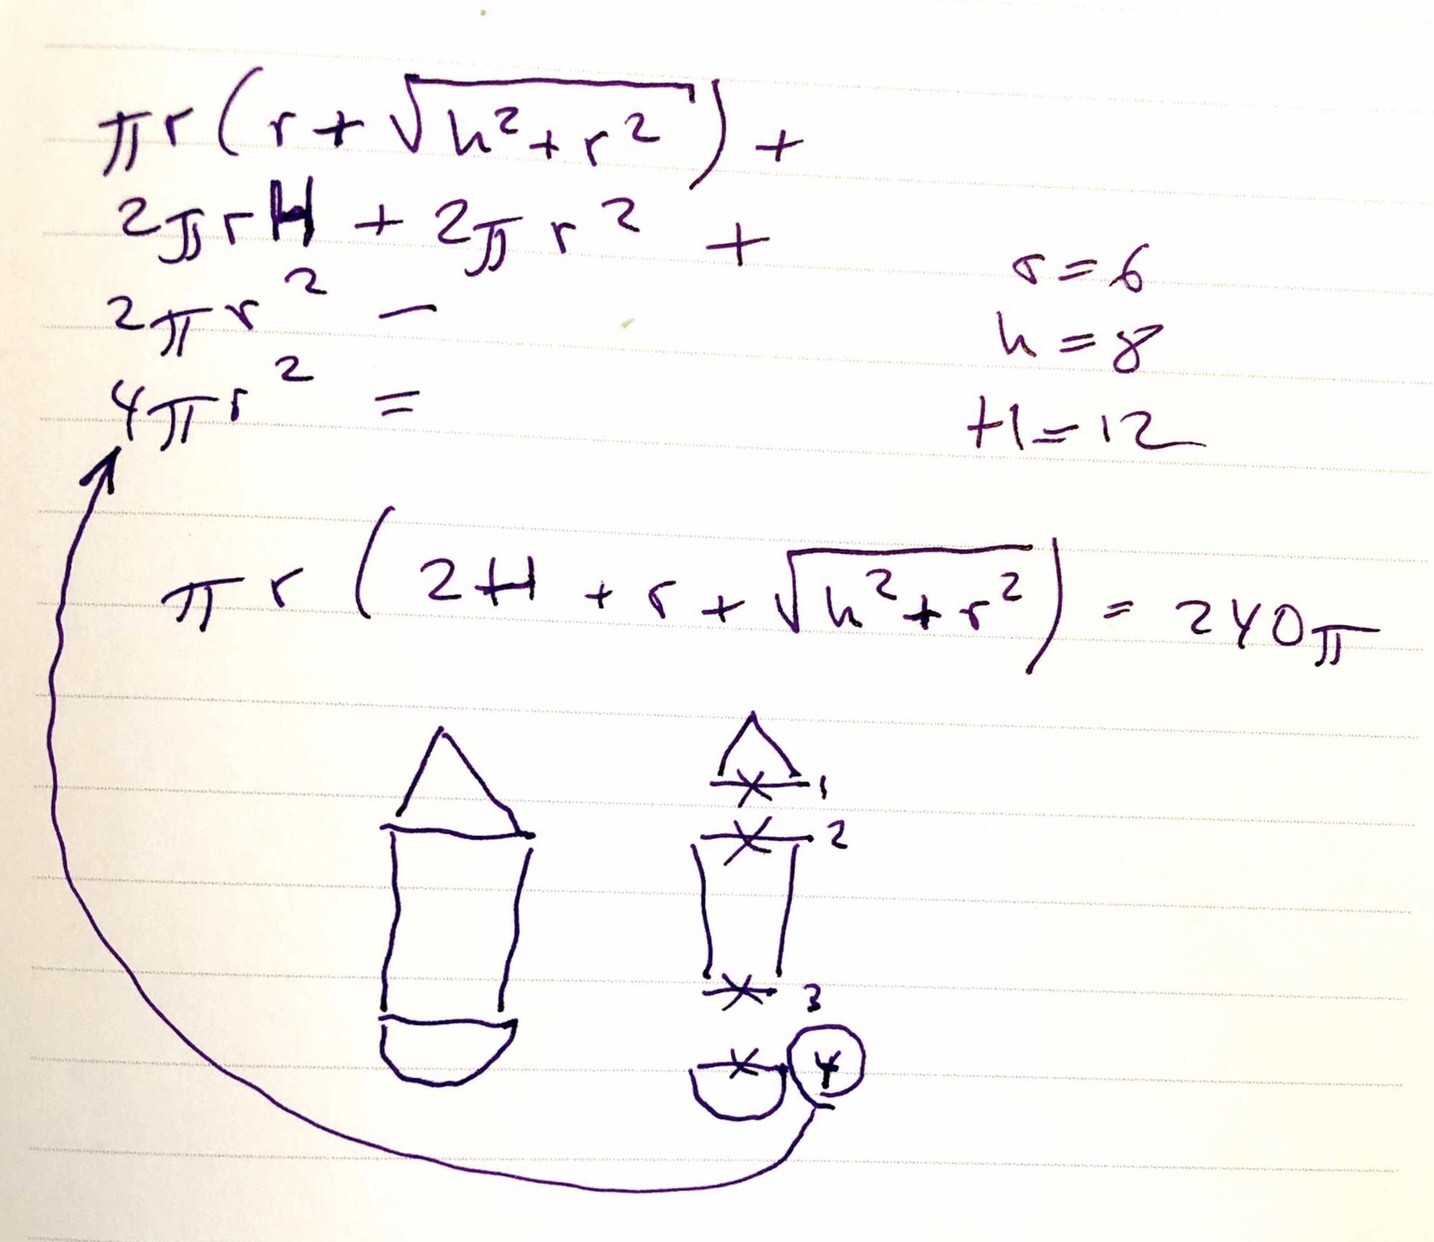 πr(r+√(h²+r²)) +
2πrH + 2πr² +
2πr² −
4πr² =
r=6
h=8
H=12
πr(2H+r+√(h²+r²)) = 240π
1
2
3
4